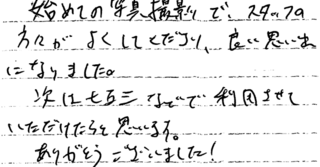 始めての写真撮影で、スタッフの
方々がよくしてくださり、良い思い出
になりました。
次は七五三などで利用させて
いただけたらと思います。
ありがとうございました!